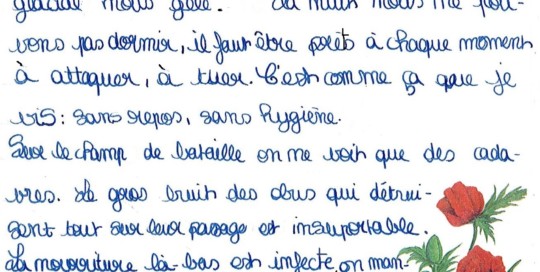 glacial nous gèle. La nuit nous ne pou-
vons pas dormir, il faut être prêts à chaque moment
à attaquer, à tuer. C'est comme ça que je
vis: sans repos, sans hygiène.
Sur le champ de bataille on ne voit que des cada-
vres. Le gros bruit des obus qui détrui-
sent tout sur leur passage est insuportable.
La nourriture là-bas est infecte, on man-